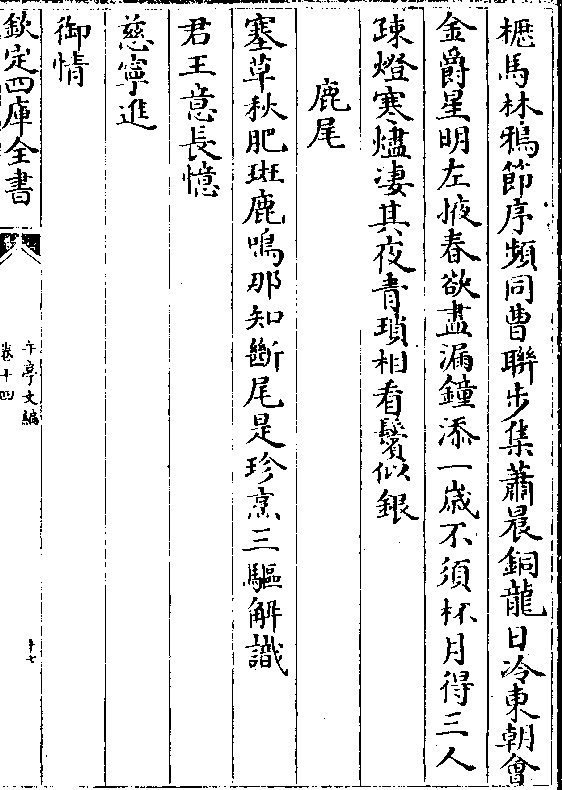 櫪馬林鴉節序頻同曹聯步集蕭晨銅龍日冷東朝會
金爵星明左掖春欲盡漏鐘添一歲不須杯月得三人
疎燈寒燼凄其夜青瑣相看鬢似銀
鹿尾
塞草秋肥斑鹿鳴那知斷尾是珍烹三驅解識
君王意長憶
慈寧進
御情
欽定四庫全書
午亭文編
卷十四
十七